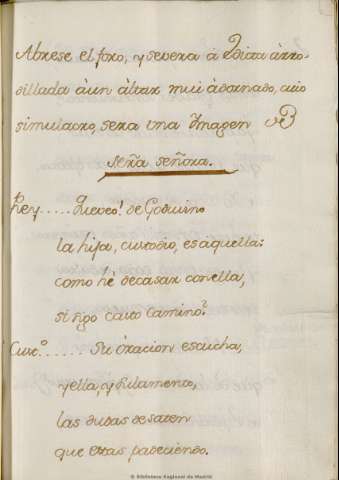 Abrese el foro, y severa á Edita arro-
dillada á un altar mui adornado, cuio
simulacro, sera una Ymagen de
nrã señora.
Rey..... Queveo! de Goduino
la hija, custodio, es aquella:
como hé de casar con ella,
si sigo casto camino?
Cust.º....... Su oracion escucha,
y ella, y su lamento,
las dudas desaten
que estas padeciendo.
© Biblioteca Regional de Madrid